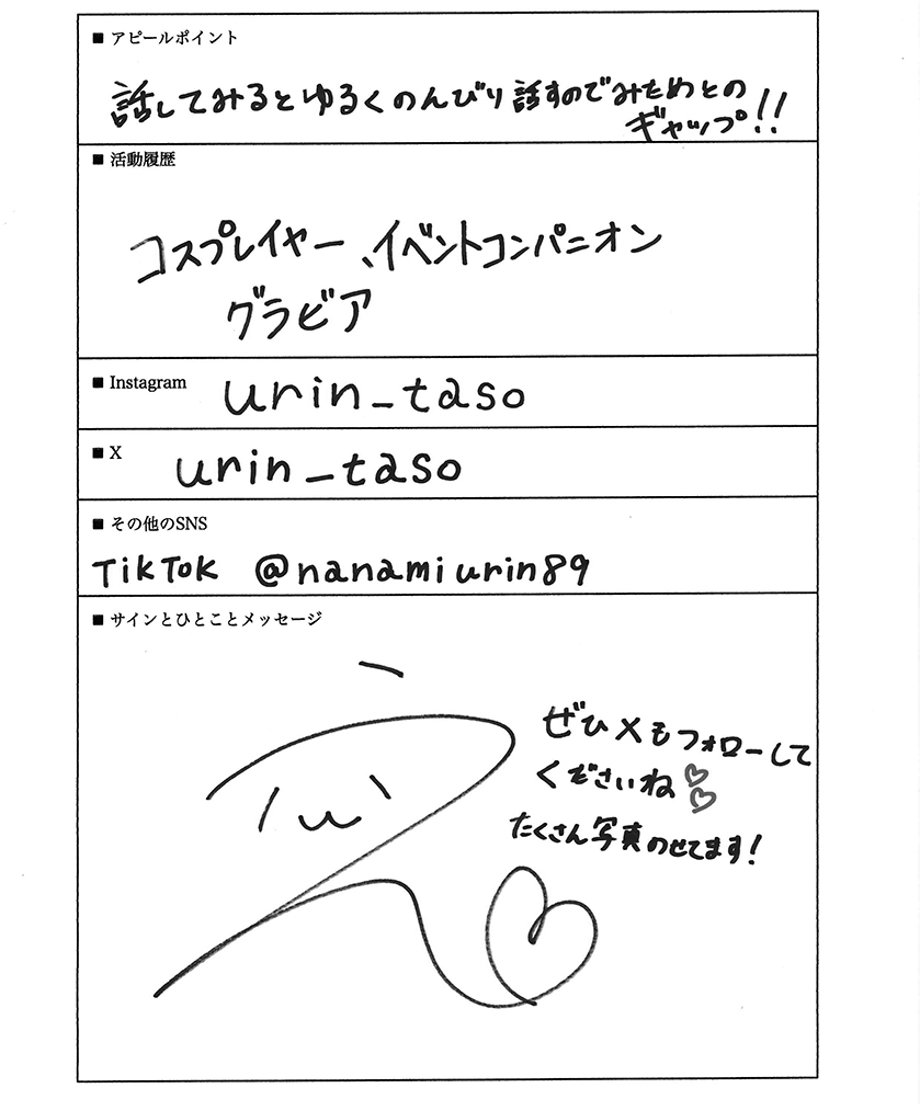 ■ アピールポイント
話してみるとゆるくのんびり話すのでみためとの
ギャップ!!
■ 活動履歴
コスプレイヤー、イベントコンパニオン
グラビア
■ Instagram urin_taso
■ X urin_taso
■ その他のSNS
TikTok @nanamiurin89
■ サインとひとことメッセージ
ぜひXもフォローして
くださいね♡♡
たくさん写真のせてます!